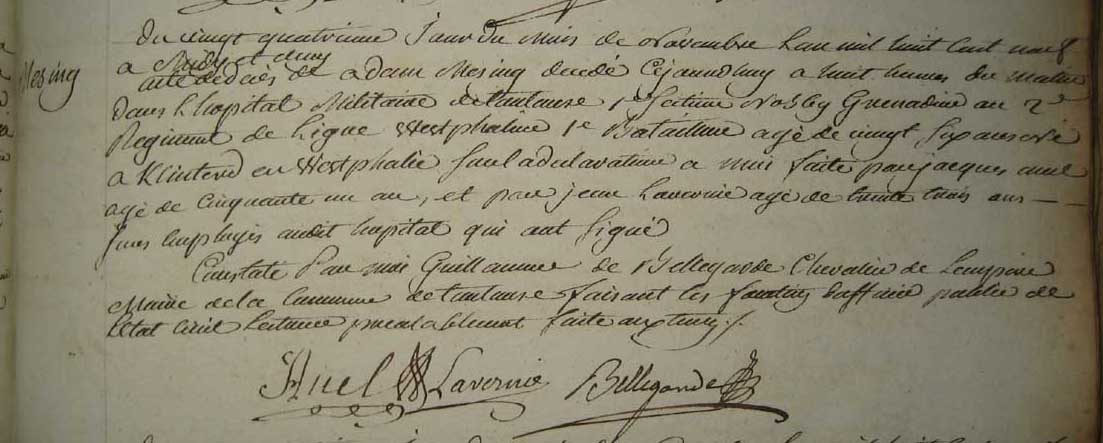 Mesing
Du vingt quatrieme Jour du Mois de Novembre Lan mil huit cent neuf
a Midy et demy
acte de décès de adam Mesing decedé Cejourdhuy a huit heures du matin
dans Lhopital Militaire de toulouse, Grenadier au 2e
Regiment de Ligne Westphalien 1e Bataillon agé de vingt six ans né
a Klinterd en Westphalie sur la declaration a moi faite par jacques anel
agé de Cinquante un an, et par jean Lavernie agé de trente trois ans
tous employés audit hopital qui ont signé
Constaté Par moi Guillaume de Bellegarde Chevalier de Lempire
Maire de la Commune de toulouse faisant les fonctions dofficier public de
letat Civil Lecture prealablement faite aux temoins
Anel Lavernie Bellegarde